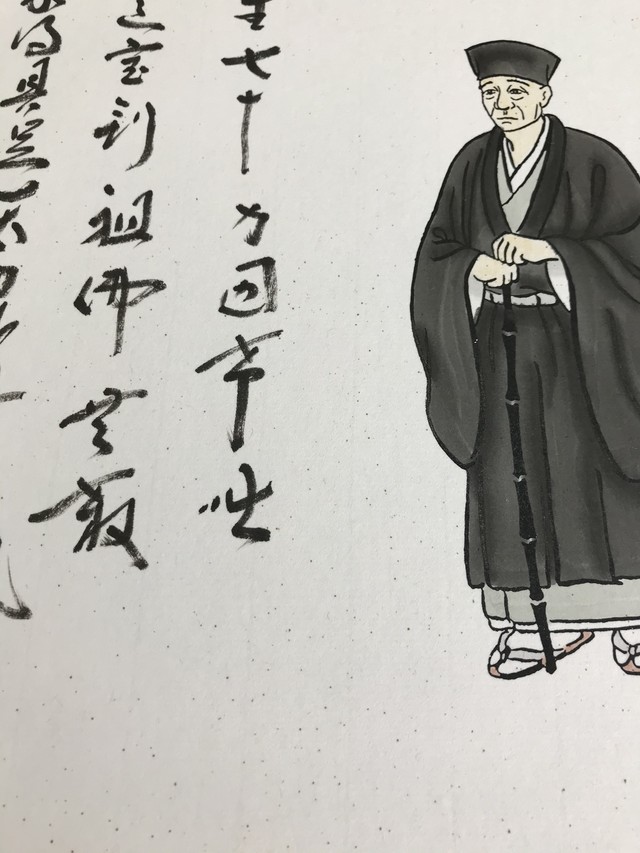 生七十　力囲希咄
這宝剣　祖佛共殺
得具足一太刀